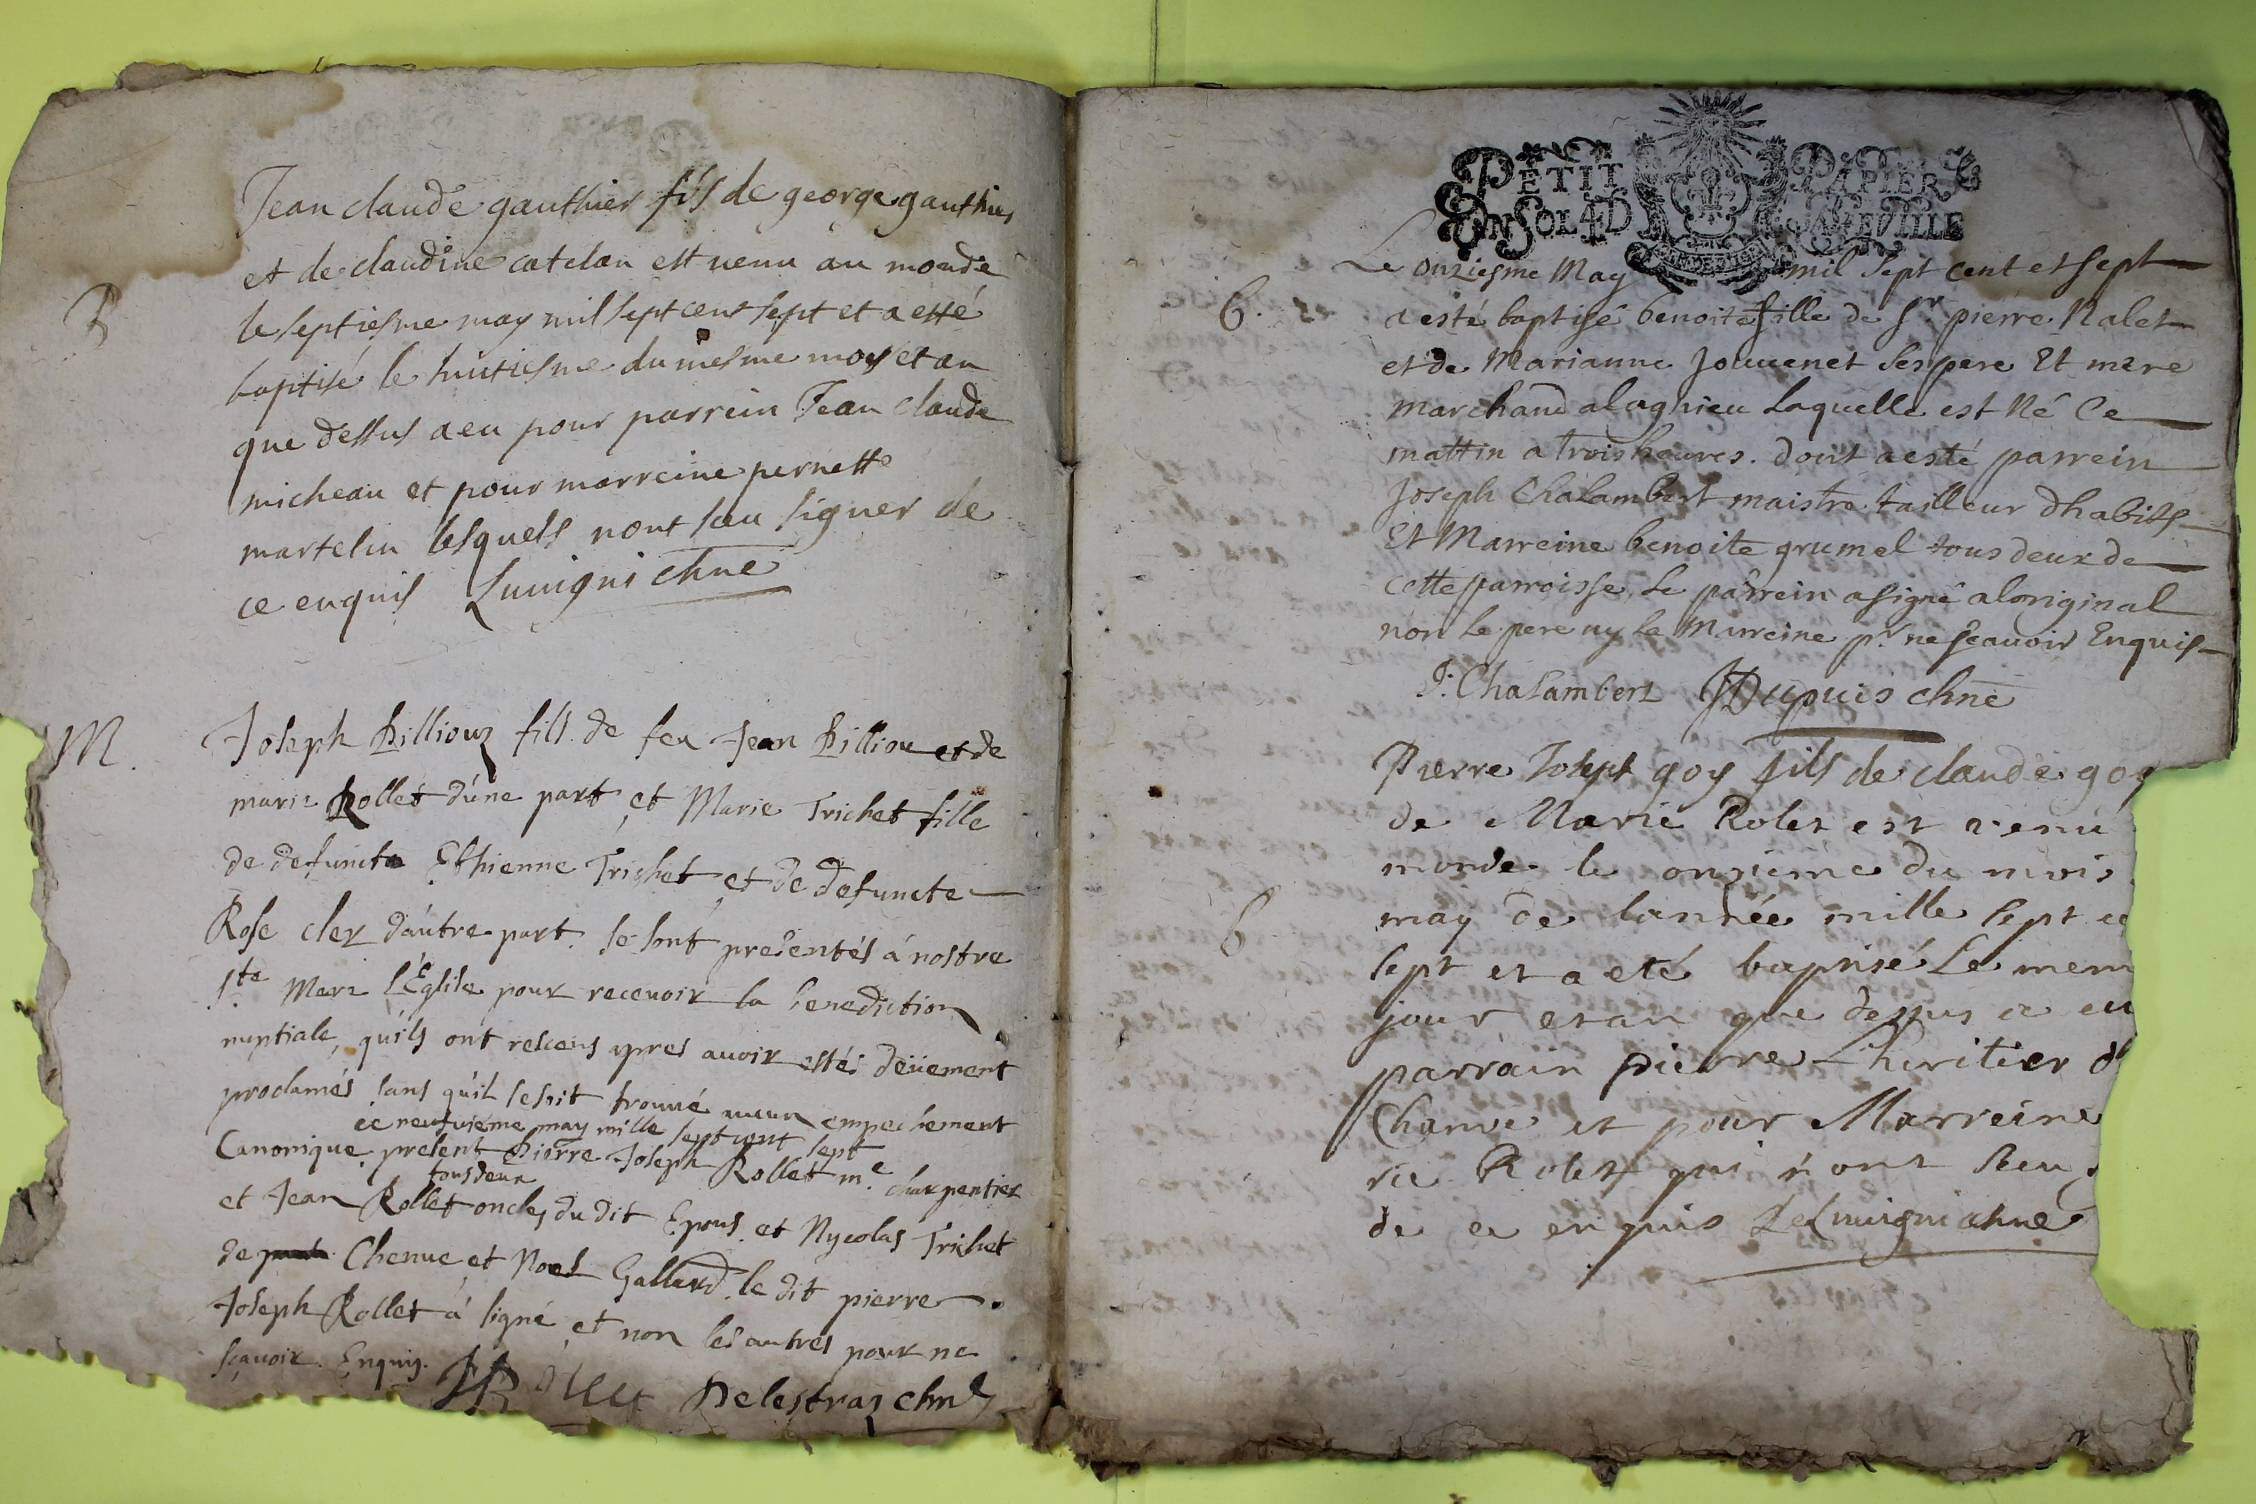 B
Jean claude gauthier fils de george gauthier
et de claudine catelan est venu au monde
le septiesme may mil sept cent sept et a esté
baptisé le huitiesme du mesme moys et an
que dessus a eu pour parrein Jean claude
micheau et pour marreine pernette
martelin lesquels nont sceu signer de
ce enquis Luuigni chne
M.
Joseph Billiouz fils de feu Jean Billiou et de
marie Rollet d'une part et Marie Trichet fille
de defuncte Esthienne Trichet et de defuncte
Rose clez d'autre part se sont presentés á nostre
Ste Mere l'Église pour recevoir la benediction
nuptiale, qu'ils ont receus apres avoir estés deüement
proclamés sans qu'il se soit trouvé aucun empechement
ce neufuiéme may mille sept cent sept
Canonique present Pierre Joseph Rollet me charpentier
tous deux
et Jean Rollet oncles du dit Epous et Nycolas Trichet
de Chenue et Noel Gallard le dit pierre
Joseph Rollet á signé et non les autres pour ne
sçavoir Enquis. JRollet Delestraz chne
PETIT PAPIER
UN SOL 4 D LA FEVILLE
Le onziesme May mil sept cent et sept
B.
a esté baptisé benoite fille de Sr pierre Nalet
et de Marianne Jouuenet ses pere Et mere
marchand a lagnieu Laquelle est Né Ce
mattin a trois heures. dont a esté parrein
Joseph Chalambert maistre tailleur dhabits
Et Marreine benoite grumel tous deux de
cette parroisse, Le parrein a signé aloriginal
non le pere ny la Marreine pr ne sçauoir Enquis
J: Chalambert JDupuis chne
Pierre Joseph goy fils de claude goy
de Marie Rolet est venu
monde le onzieme du mois
B
may de lannée mille sept ce
sept et a eté baptisé Le mem
jour et an que dessus a eu
parrain pierre Lheritier d
Chanve et pour Marreine
rie Rolet qui n'ont sceu s
de ce enquis De Luuigni chne